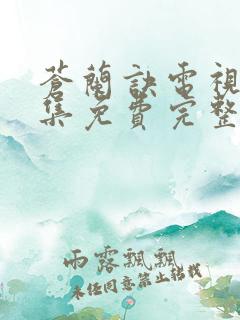 蒼蘭訣電視
集免費完整
雨露飄飄
未经同意禁止转载